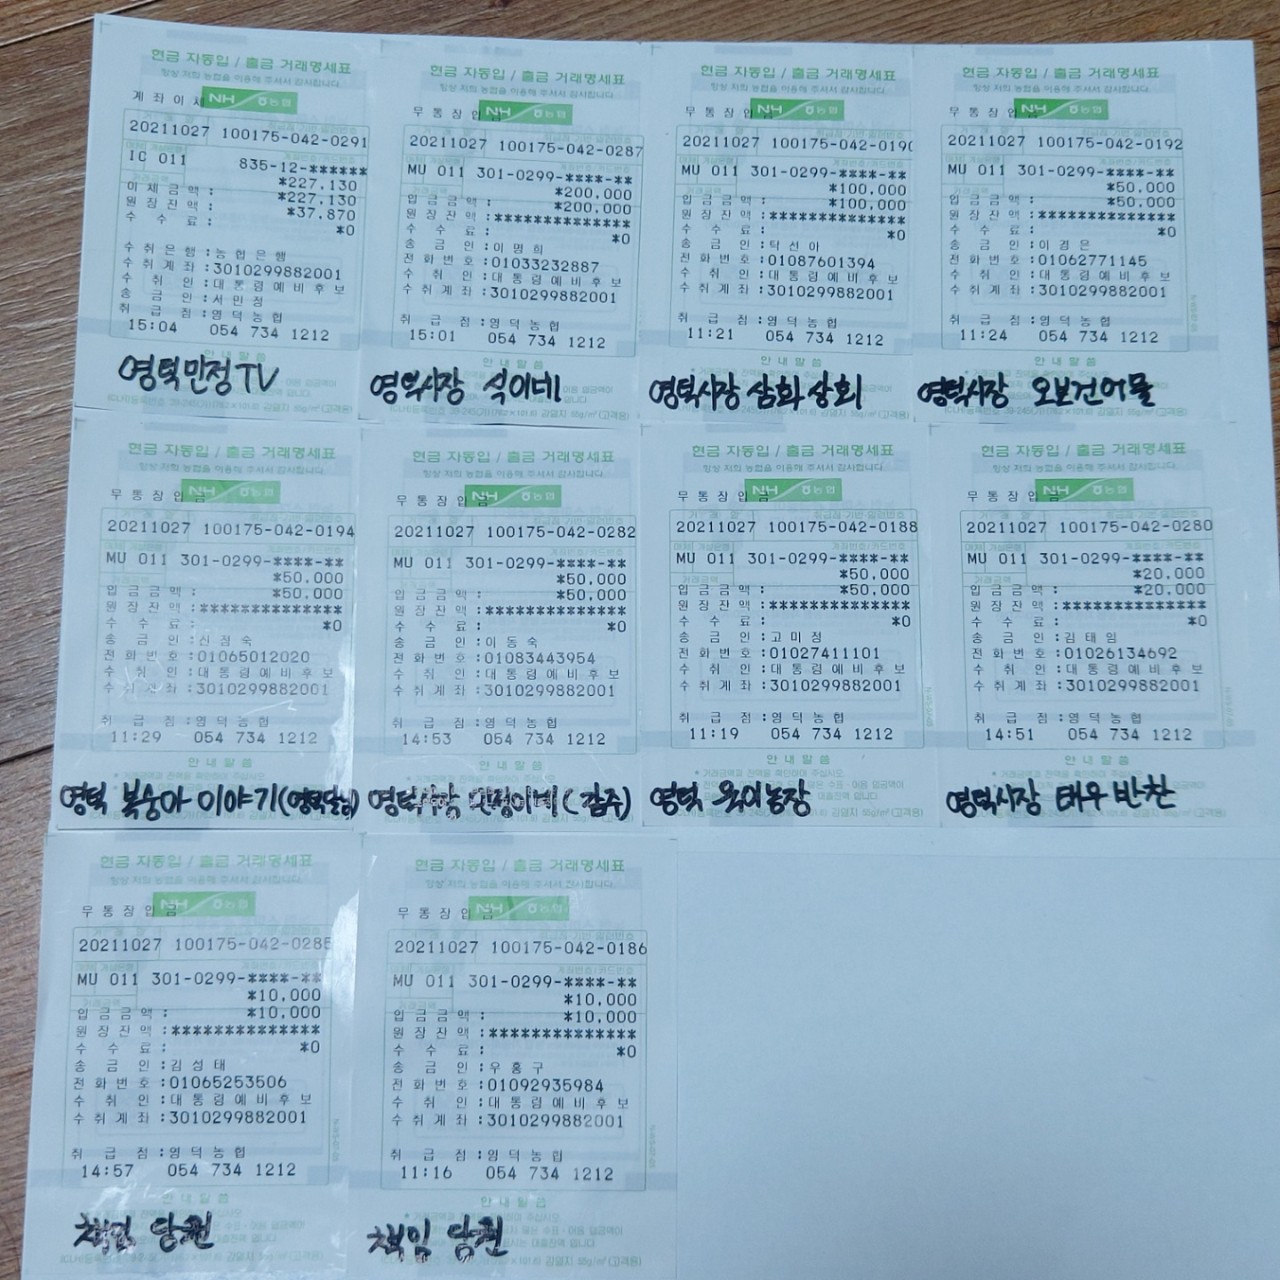 현금 자동입 / 출금 거래명세표
항상 저희 농협을 이용해 주셔서 감사합니다.
계좌이체
NH 농협
20211027 100175-042-0291
IC 011 835-12-******
*227,130
이체금액: *227,130
원장잔액: *37,870
수수료: *0
수취은행:농협은행
수취계좌:3010299882001
수취인:대통령예비후보
송금인:서민정
취급점:영덕농협
15:04 054 734 1212
영덕민정TV
현금 자동입 / 출금 거래명세표
항상 저희 농협을 이용해 주셔서 감사합니다.
무통장입금
NH 농협
20211027 100175-042-0287
MU 011 301-0299-****-**
*200,000
입금금액: *200,000
원장잔액:**************
수수료: *0
송금인:이명희
전화번호:01033232887
수취인:대통령예비후보
수취계좌:3010299882001
취급점:영덕농협
15:01 054 734 1212
안내말씀
영덕시장 식이네
현금 자동입 / 출금 거래명세표
항상 저희 농협을 이용해 주셔서 감사합니다.
무통장입금
NH 농협
20211027 100175-042-0190
MU 011 301-0299-****-**
*100,000
입금금액: *100,000
원장잔액:**************
수수료: *0
송금인:탁선아
전화번호:01087601394
수취인:대통령예비후보
수취계좌:3010299882001
취급점:영덕농협
11:21 054 734 1212
안내말씀
영덕시장 삼화상회
현금 자동입 / 출금 거래명세표
항상 저희 농협을 이용해 주셔서 감사합니다.
무통장입금
NH 농협
20211027 100175-042-0192
MU 011 301-0299-****-**
*50,000
입금금액: *50,000
원장잔액:**************
수수료: *0
송금인:이경은
전화번호:01062771145
수취인:대통령예비후보
수취계좌:3010299882001
취급점:영덕농협
11:24 054 734 1212
안내말씀
영덕시장 오보건어물
현금 자동입 / 출금 거래명세표
항상 저희 농협을 이용해 주셔서 감사합니다.
무통장입금
NH 농협
20211027 100175-042-0194
MU 011 301-0299-****-**
*50,000
입금금액: *50,000
원장잔액:**************
수수료: *0
송금인:신점숙
전화번호:01065012020
수취인:대통령예비후보
수취계좌:3010299882001
취급점:영덕농협
11:29 054 734 1212
안내말씀
영덕 복숭아 이야기
현금 자동입 / 출금 거래명세표
항상 저희 농협을 이용해 주셔서 감사합니다.
무통장입금
NH 농협
20211027 100175-042-0282
MU 011 301-0299-****-**
*50,000
입금금액: *50,000
원장잔액:**************
수수료: *0
송금인:이동숙
전화번호:01083443954
수취인:대통령예비후보
수취계좌:3010299882001
취급점:영덕농협
14:53 054 734 1212
안내말씀
영덕시장
현금 자동입 / 출금 거래명세표
항상 저희 농협을 이용해 주셔서 감사합니다.
무통장입금
NH 농협
20211027 100175-042-0188
MU 011 301-0299-****-**
*50,000
입금금액: *50,000
원장잔액:**************
수수료: *0
송금인:고미정
전화번호:01027411101
수취인:대통령예비후보
수취계좌:3010299882001
취급점:영덕농협
11:19 054 734 1212
안내말씀
영덕 옥이농장
현금 자동입 / 출금 거래명세표
항상 저희 농협을 이용해 주셔서 감사합니다.
무통장입금
NH 농협
20211027 100175-042-0280
MU 011 301-0299-****-**
*20,000
입금금액: *20,000
원장잔액:**************
수수료: *0
송금인:김태임
전화번호:01026134692
수취인:대통령예비후보
수취계좌:3010299882001
취급점:영덕농협
14:51 054 734 1212
안내말씀
영덕시장 태우반찬
현금 자동입 / 출금 거래명세표
항상 저희 농협을 이용해 주셔서 감사합니다.
무통장입금
NH 농협
20211027 100175-042-0285
MU 011 301-0299-****-**
*10,000
입금금액: *10,000
원장잔액:**************
수수료: *0
송금인:김성태
전화번호:01065253506
수취인:대통령예비후보
수취계좌:3010299882001
취급점:영덕농협
14:57 054 734 1212
안내말씀
책임 당원
현금 자동입 / 출금 거래명세표
항상 저희 농협을 이용해 주셔서 감사합니다.
무통장입금
NH 농협
20211027 100175-042-0186
MU 011 301-0299-****-**
*10,000
입금금액: *10,000
원장잔액:**************
수수료: *0
송금인:우홍구
전화번호:01092935984
수취인:대통령예비후보
수취계좌:3010299882001
취급점:영덕농협
11:16 054 734 1212
안내말씀
책임 당원